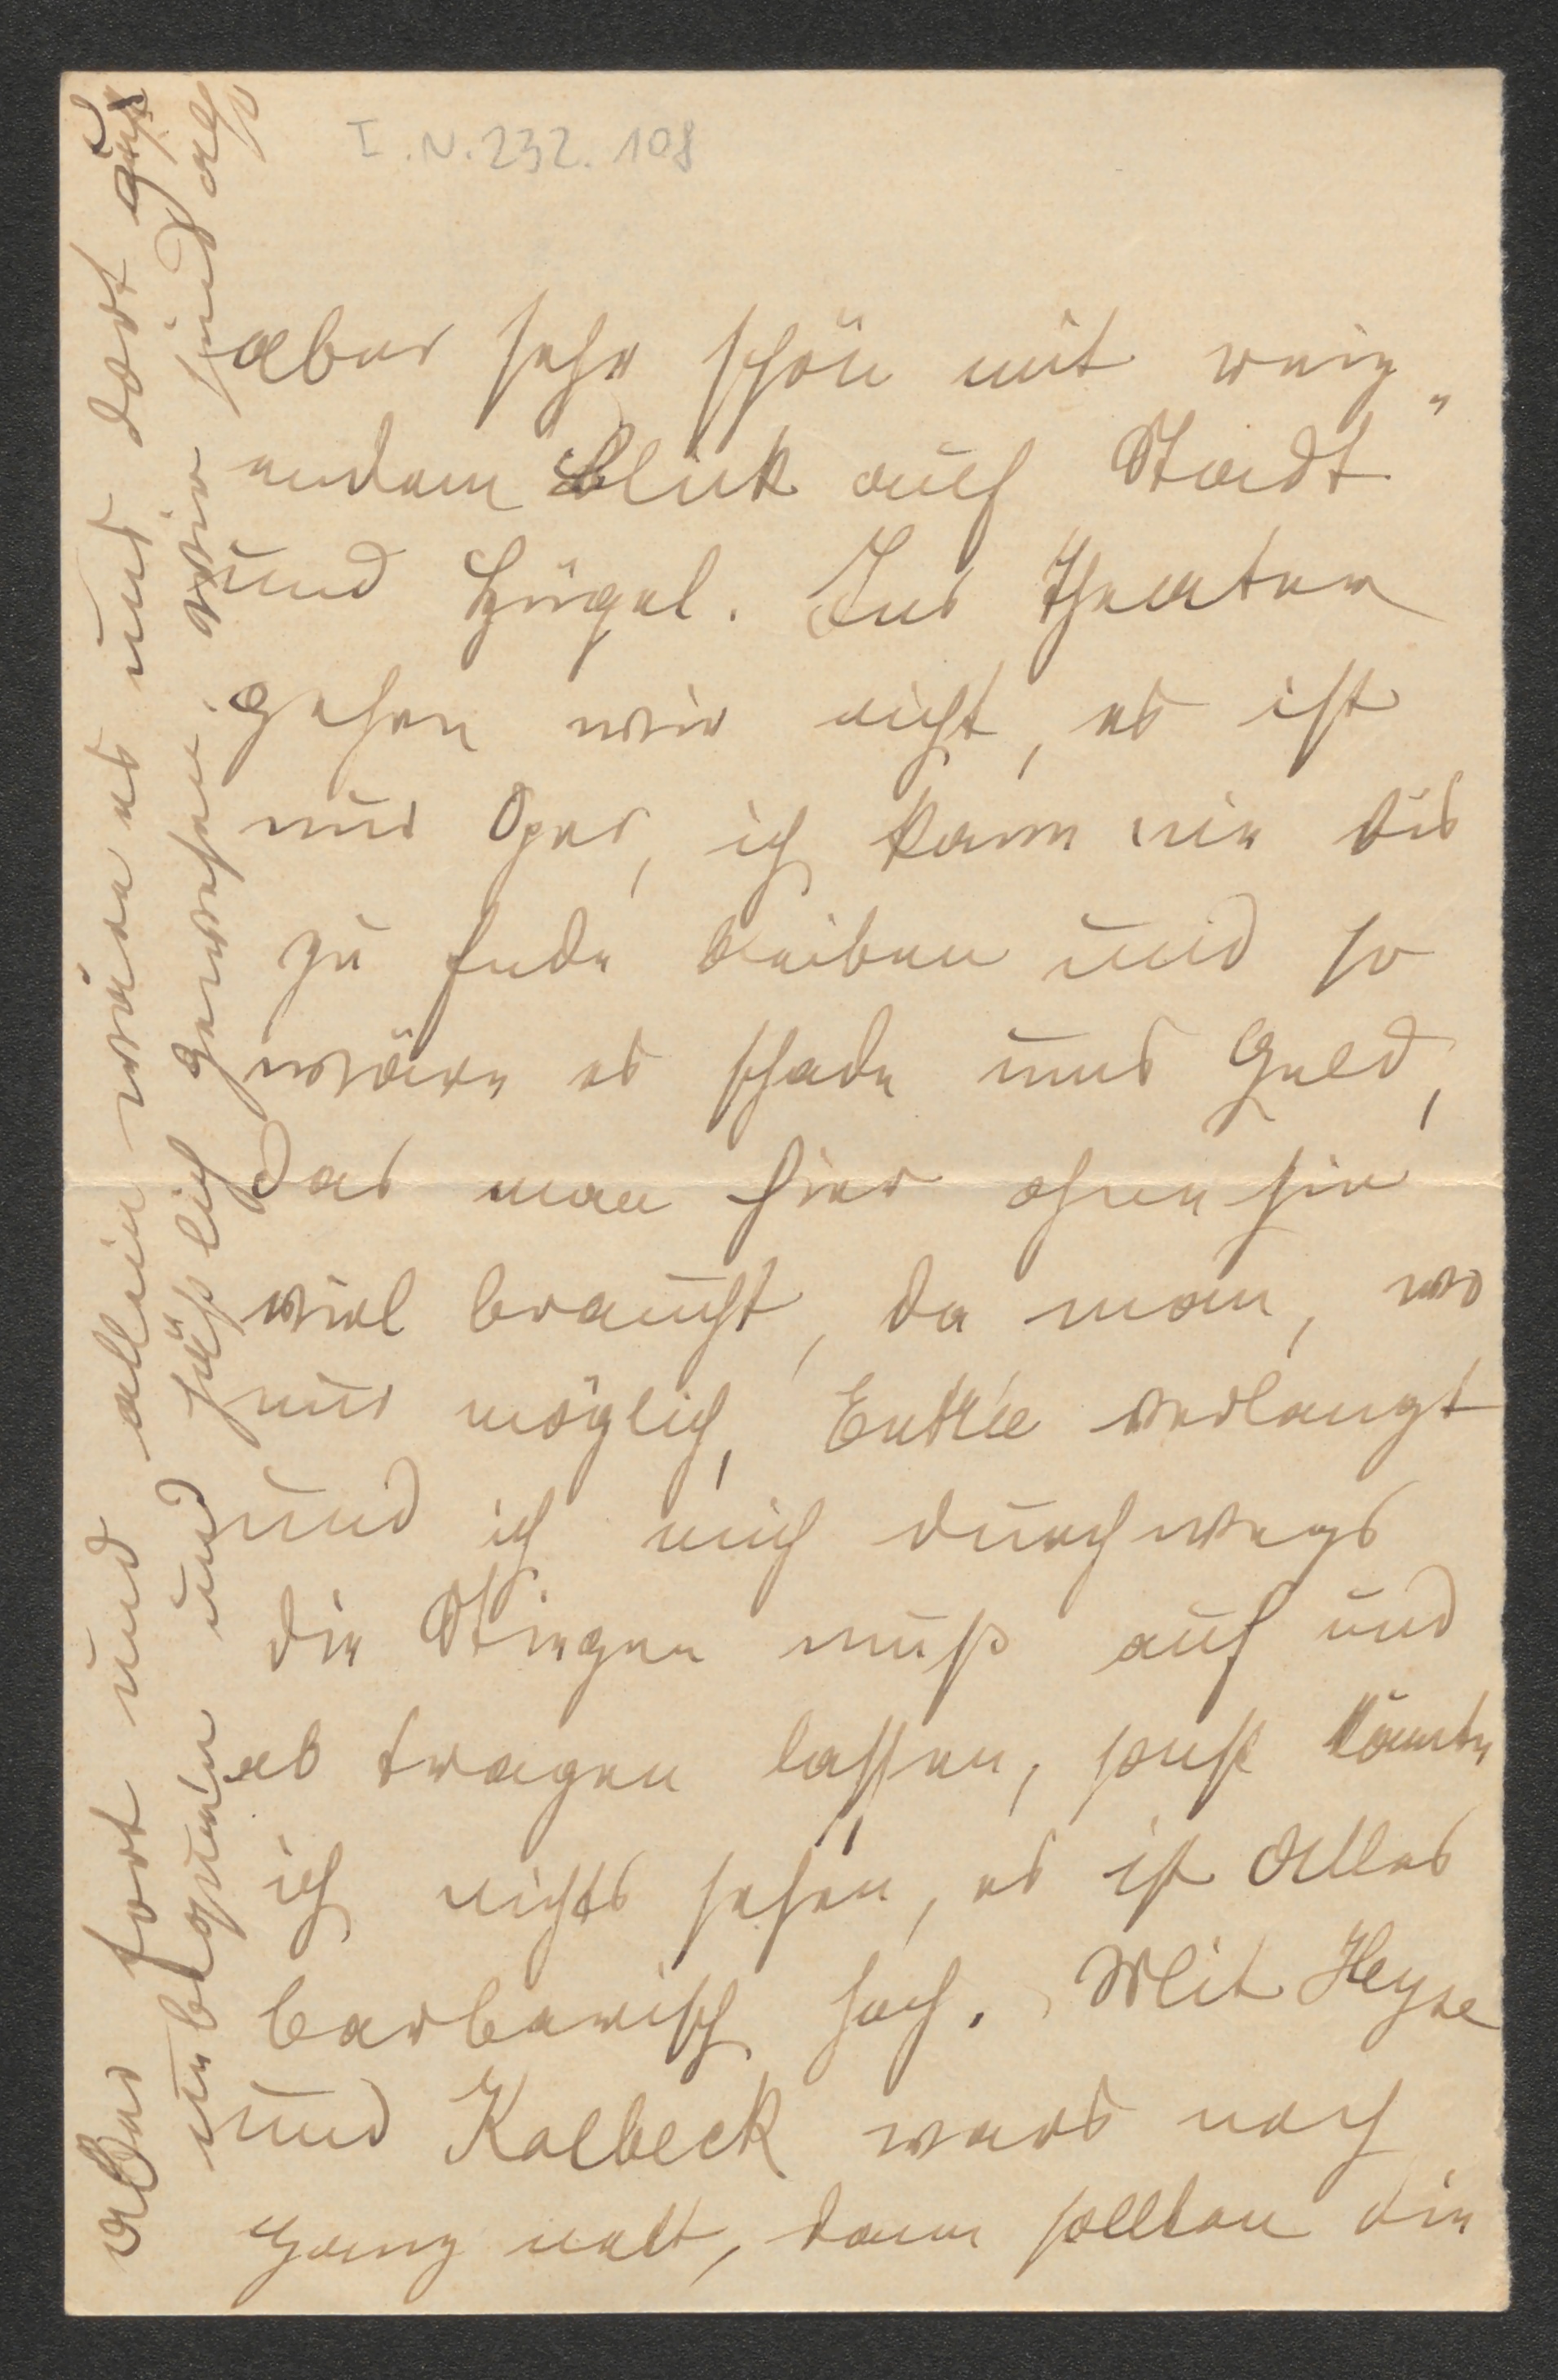 I.N. 232.108
aber sehr schön mit reiz„
endem Blick auf Stadt
und Hügel. Ins Theater
gehen wir nicht, es ist
nur Oper, ich kann nie bis
zu Ende bleiben und so
wäre es schade ums Geld,
das man hier ohnehin
viel braucht, da man, wo
nur möglich, Entrée verlangt
und ich mich durchwegs
die Stiegen muß auf und
ab tragen lassen, sonst könnte
ich nichts sehen, es ist Alles
barbarisch hoch. Mit Heyse
und Kalbeck wars noch
ganz nett, dann sollten die
Aber fort und allein wäre es und dort
unbequem und häßlich gewesen. wir sind also